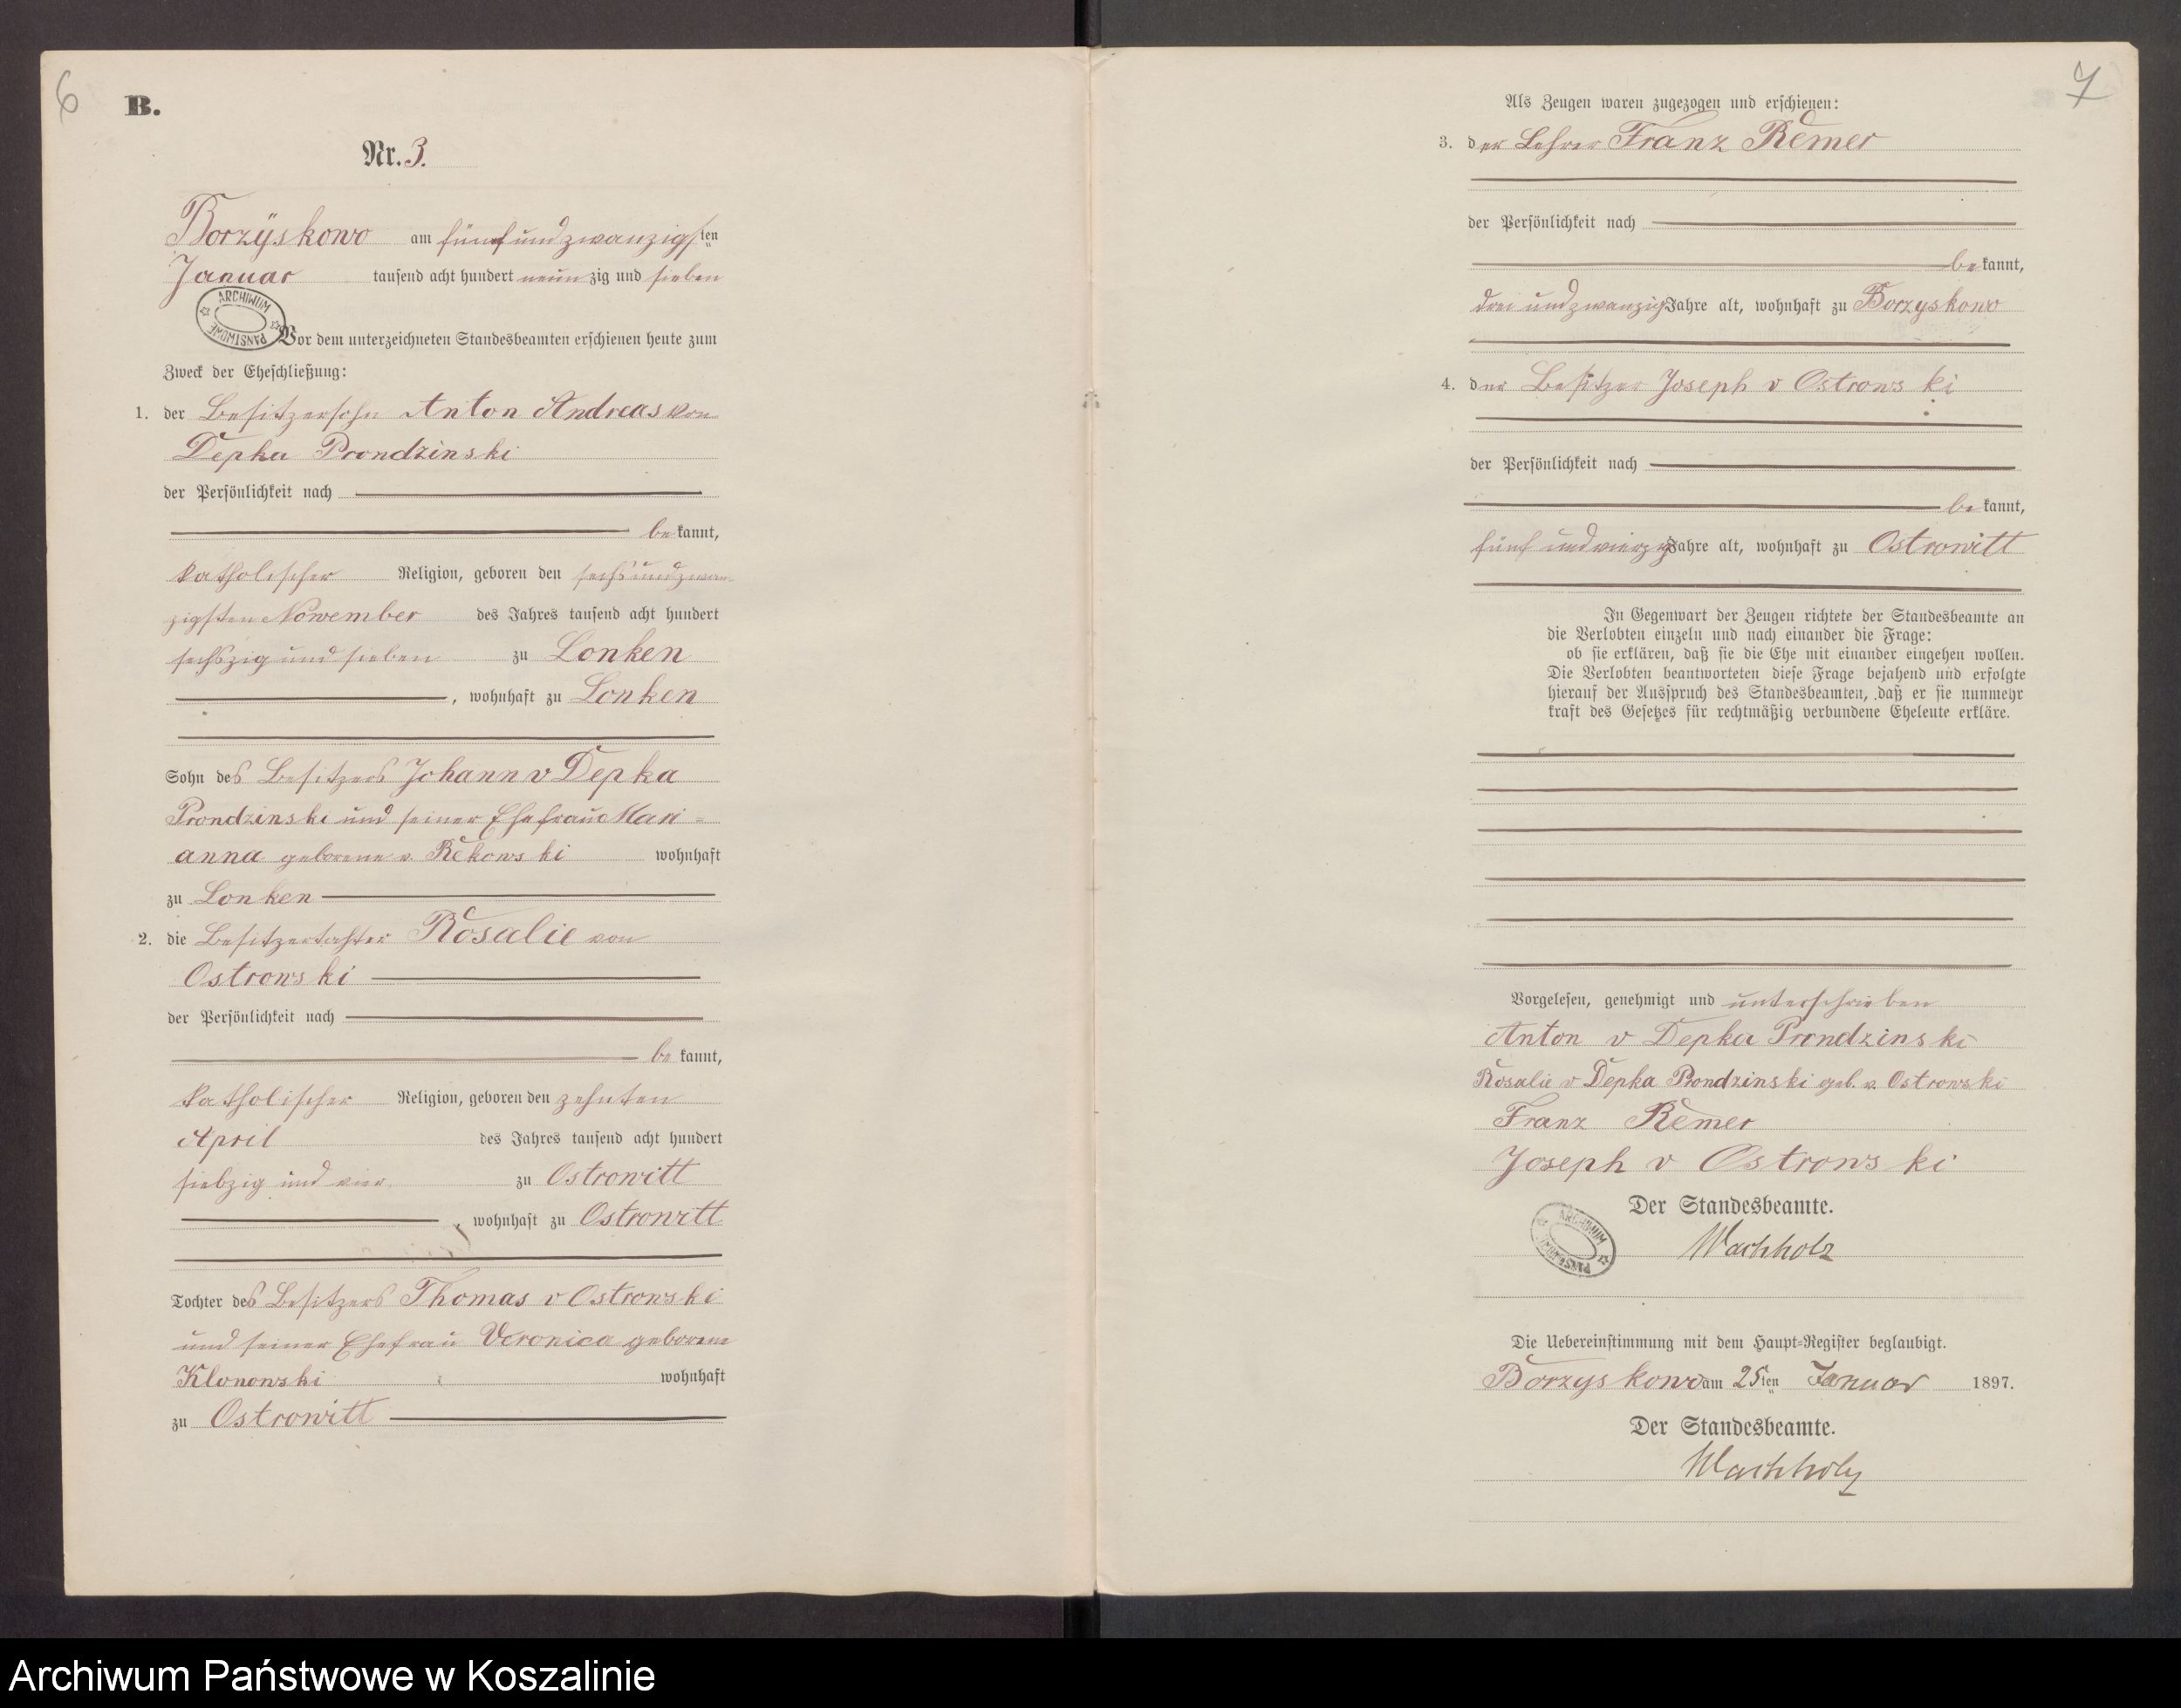 6
B.
Nr. 3.
Borzÿskowo am fünfundzwanzigsten
Januar tausend acht hundert neunzig und sieben
ARCHIWUM PAŃSTWOWE
Vor dem unterzeichneten Standesbeamten erschienen heute zum
Zweck der Eheschließung:
1. der Besitzersohn Anton Andreas von
Depka Prondzinski
der Persönlichkeit nach
bekannt,
katholischer Religion, geboren den sechsundzwan-
zigsten November des Jahres tausend acht hundert
sechszig und sieben zu Lonken
, wohnhaft zu Lonken
Sohn des Besitzers Johann v Depka
Prondzinski und seiner Ehefrau Mari-
anna geborene v. Rekowski wohnhaft
zu Lonken
2. die Besitzertochter Rosalie von
Ostrowski
der Persönlichkeit nach
bekannt,
katholischer Religion, geboren den zehnten
April des Jahres tausend acht hundert
siebzig und vier zu Ostrowitt
, wohnhaft zu Ostrowitt
Tochter des Besitzers Thomas v Ostrowski
und seiner Ehefrau Veronica geborene
Klonowski wohnhaft
zu Ostrowitt
7
Als Zeugen waren zugezogen und erschienen:
3. der Lehrer Franz Remer
der Persönlichkeit nach
bekannt,
drei undzwanzig Jahre alt, wohnhaft zu Borzyskowo
4. der Besitzer Joseph v Ostrowski
der Persönlichkeit nach
bekannt,
fünf undvierzig Jahre alt, wohnhaft zu Ostrowitt
In Gegenwart der Zeugen richtete der Standesbeamte an
die Verlobten einzeln und nach einander die Frage:
ob sie erklären, daß sie die Ehe mit einander eingehen wollen.
Die Verlobten beantworteten diese Frage bejahend und erfolgte
hierauf der Ausspruch des Standesbeamten, daß er sie nunmehr
kraft des Gesetzes für rechtmäßig verbundene Eheleute erkläre.
Vorgelesen, genehmigt und unterschrieben
Anton v Depka Prondzinski
Rosalie v Depka Prondzinski geb. v. Ostrowski
Franz Remer
Joseph v Ostrowski
Der Standesbeamte.
ARCHIWUM PAŃSTWOWE
Wachholz
Die Uebereinstimmung mit dem Haupt-Register beglaubigt.
Borzyskowo am 25ten Januar 1897.
Der Standesbeamte.
Wachholz
Archiwum Państwowe w Koszalinie